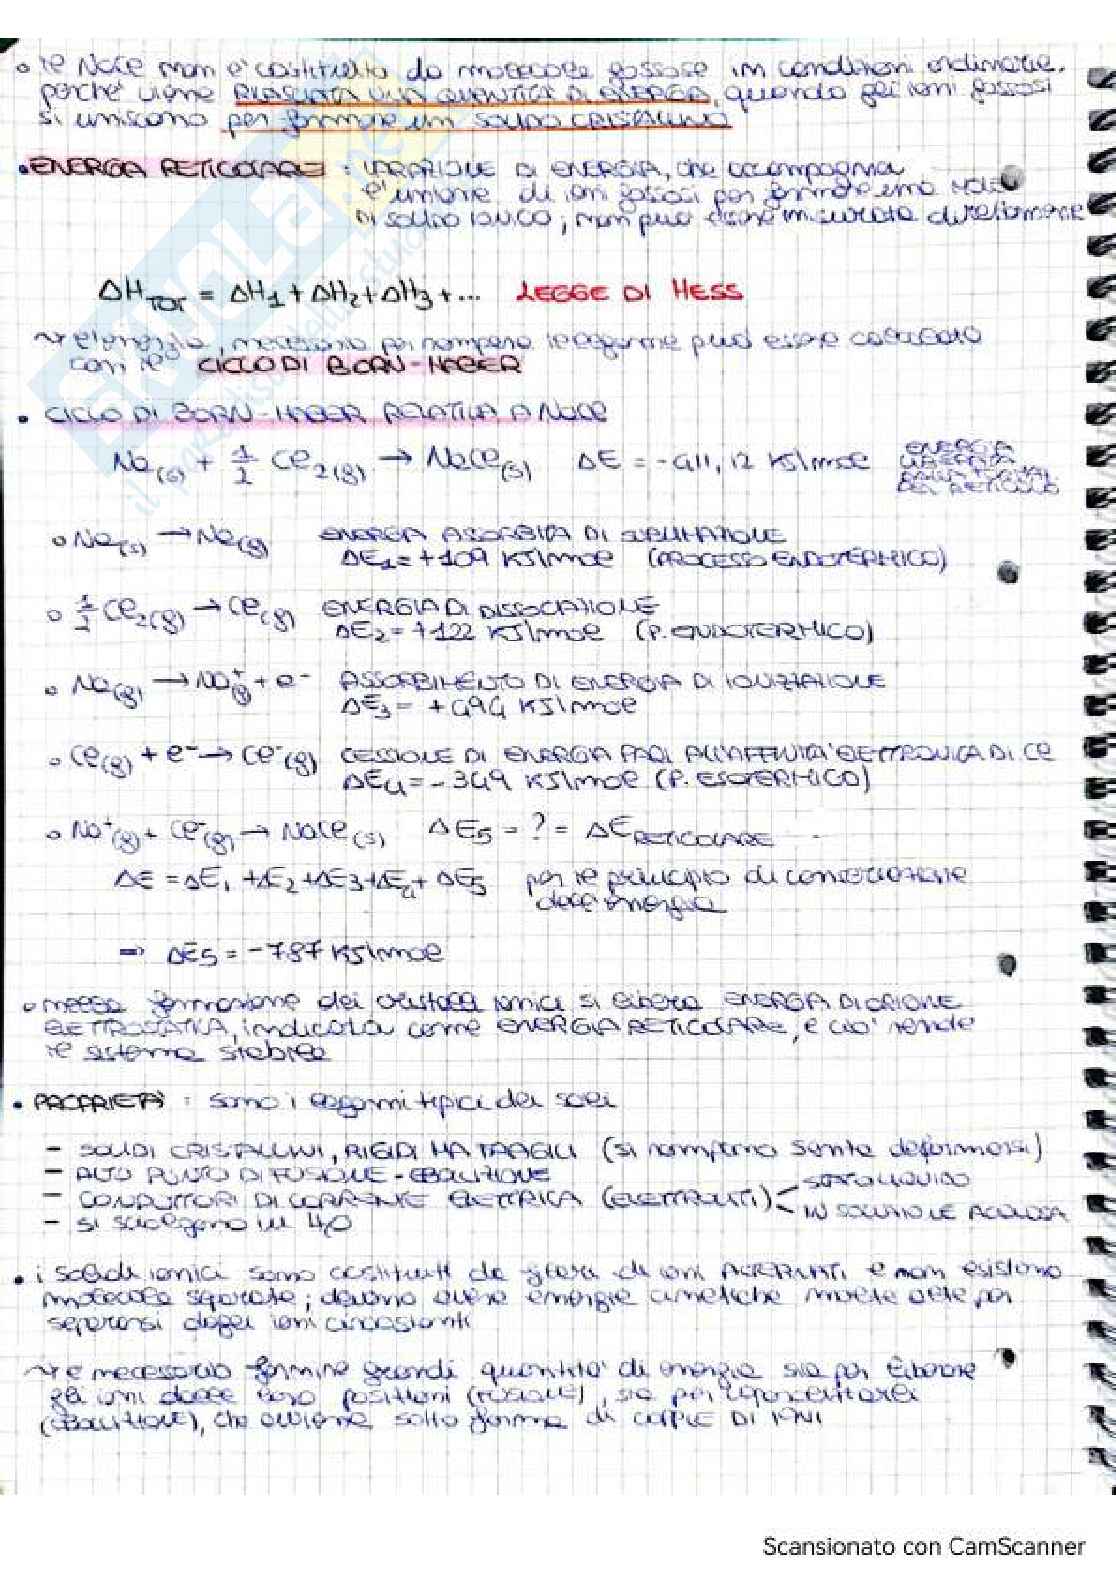 • il NaCl non e' costituito da molecole gassose in condizioni ordinarie,
perche' viene RILASCIATA UNA QUANTITÀ DI ENERGIA, quando gli ioni gassosi
si uniscono per formare un SOLIDO CRISTALLINO
• ENERGIA RETICOLARE : VARIAZIONE DI ENERGIA, che accompagna
l'unione di ioni gassosi per formare una mole
DI SOLIDO IONICO; non può essere misurata direttamente
ΔH TOT = ΔH1 + ΔH2 + ΔH3 + ... LEGGE DI HESS
↪ l'energia necessaria per rompere il legame può essere calcolato
con il CICLO DI BORN-HABER
• CICLO DI BORN-HABER RELATIVA A NaCl
Na(s) + 1/2 Cl2(g) → NaCl(s) ΔE = -411,12 KJ/mol ENERGIA
LIBERATA
DEL RETICOLO
o Na(s) → Na(g) ENERGIA ASSORBITA DI SUBLIMAZIONE
ΔE1 = +109 KJ/mol (PROCESSO ENDOTERMICO)
o 1/2 Cl2(g) → Cl(g) ENERGIA DI DISSOCIAZIONE
ΔE2 = +122 KJ/mol (P. ENDOTERMICO)
o Na(g) → Na+(g) + e- ASSORBIMENTO DI ENERGIA DI IONIZZAZIONE
ΔE3 = +494 KJ/mol
o Cl(g) + e- → Cl-(g) CESSIONE DI ENERGIA PARI ALL'AFFINITA' ELETTRONICA DI Cl
ΔE4 = -349 KJ/mol (P. ESOTERMICO)
o Na+(g) + Cl-(g) → NaCl(s) ΔE5 = ? = ΔE RETICOLARE
ΔE = ΔE1 + ΔE2 + ΔE3 + ΔE4 + ΔE5 per il principio di conservazione
dell'energia
⇒ ΔE5 = -787 KJ/mol
o nella formazione dei cristalli ionici si libera ENERGIA DI COESIONE
ELETTROSTATICA, indicata come ENERGIA RETICOLARE, e cio' rende
il sistema stabile
• PROPRIETÀ : sono i legami tipici dei sali
- SOLIDI CRISTALLINI, RIGIDI MA FRAGILI (si rompono senza deformarsi)
- ALTO PUNTO DI FUSIONE - EBOLLIZIONE
- CONDUTTORI DI CORRENTE ELETTRICA (ELETTROLITI) < STATO LIQUIDO
IN SOLUZIONE ACQUOSA
- si sciolgono in H2O
• i solidi ionici sono costituiti da ioni ALTERNATI e non esistono
molecole separate; devono avere energie cinetiche molto alte per
separarsi dagli ioni circostanti
↪ e necessario fornire grandi quantita' di energia sia per liberare
gli ioni dalle loro posizioni (FUSIONE), sia per
(EBOLLIZIONE), che avviene sotto forma di COPPIE DI IONI
Scansionato con CamScanner